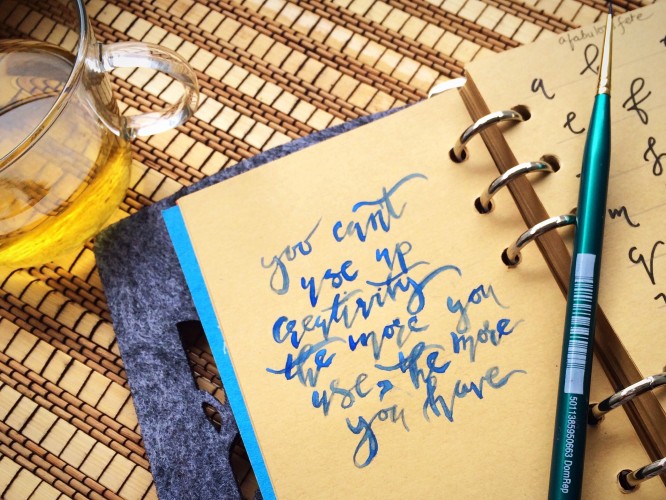 you can't
use up
creativity
the more you
use, the more
you have
afabulousfete
a
f
e
m
5011385950663 DomRep